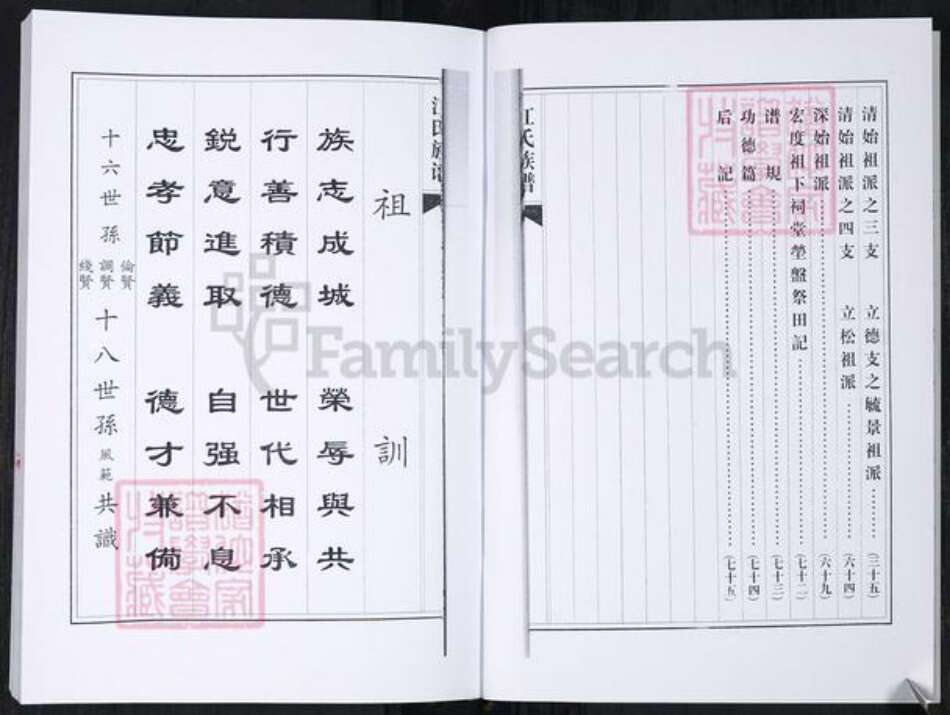 清始祖派之三支 立德支之毓景祖派(三十五)
清始祖派之四支 立松祖派(六十四)
深始祖派(六十九)
宏度祖下祠堂塋盤祭田記(七十二)
谱規(七十三)
功德篇(七十四)
后記(七十五)
江氏族譜
江氏族譜
祖訓
族志成城 榮辱與共
行善積德 世代相承
鋭意進取 自强不息
忠孝節義 德才兼備
十六世孫 倫賢 調賢 綫賢 十八世孫 風範 共識
FamilySearch